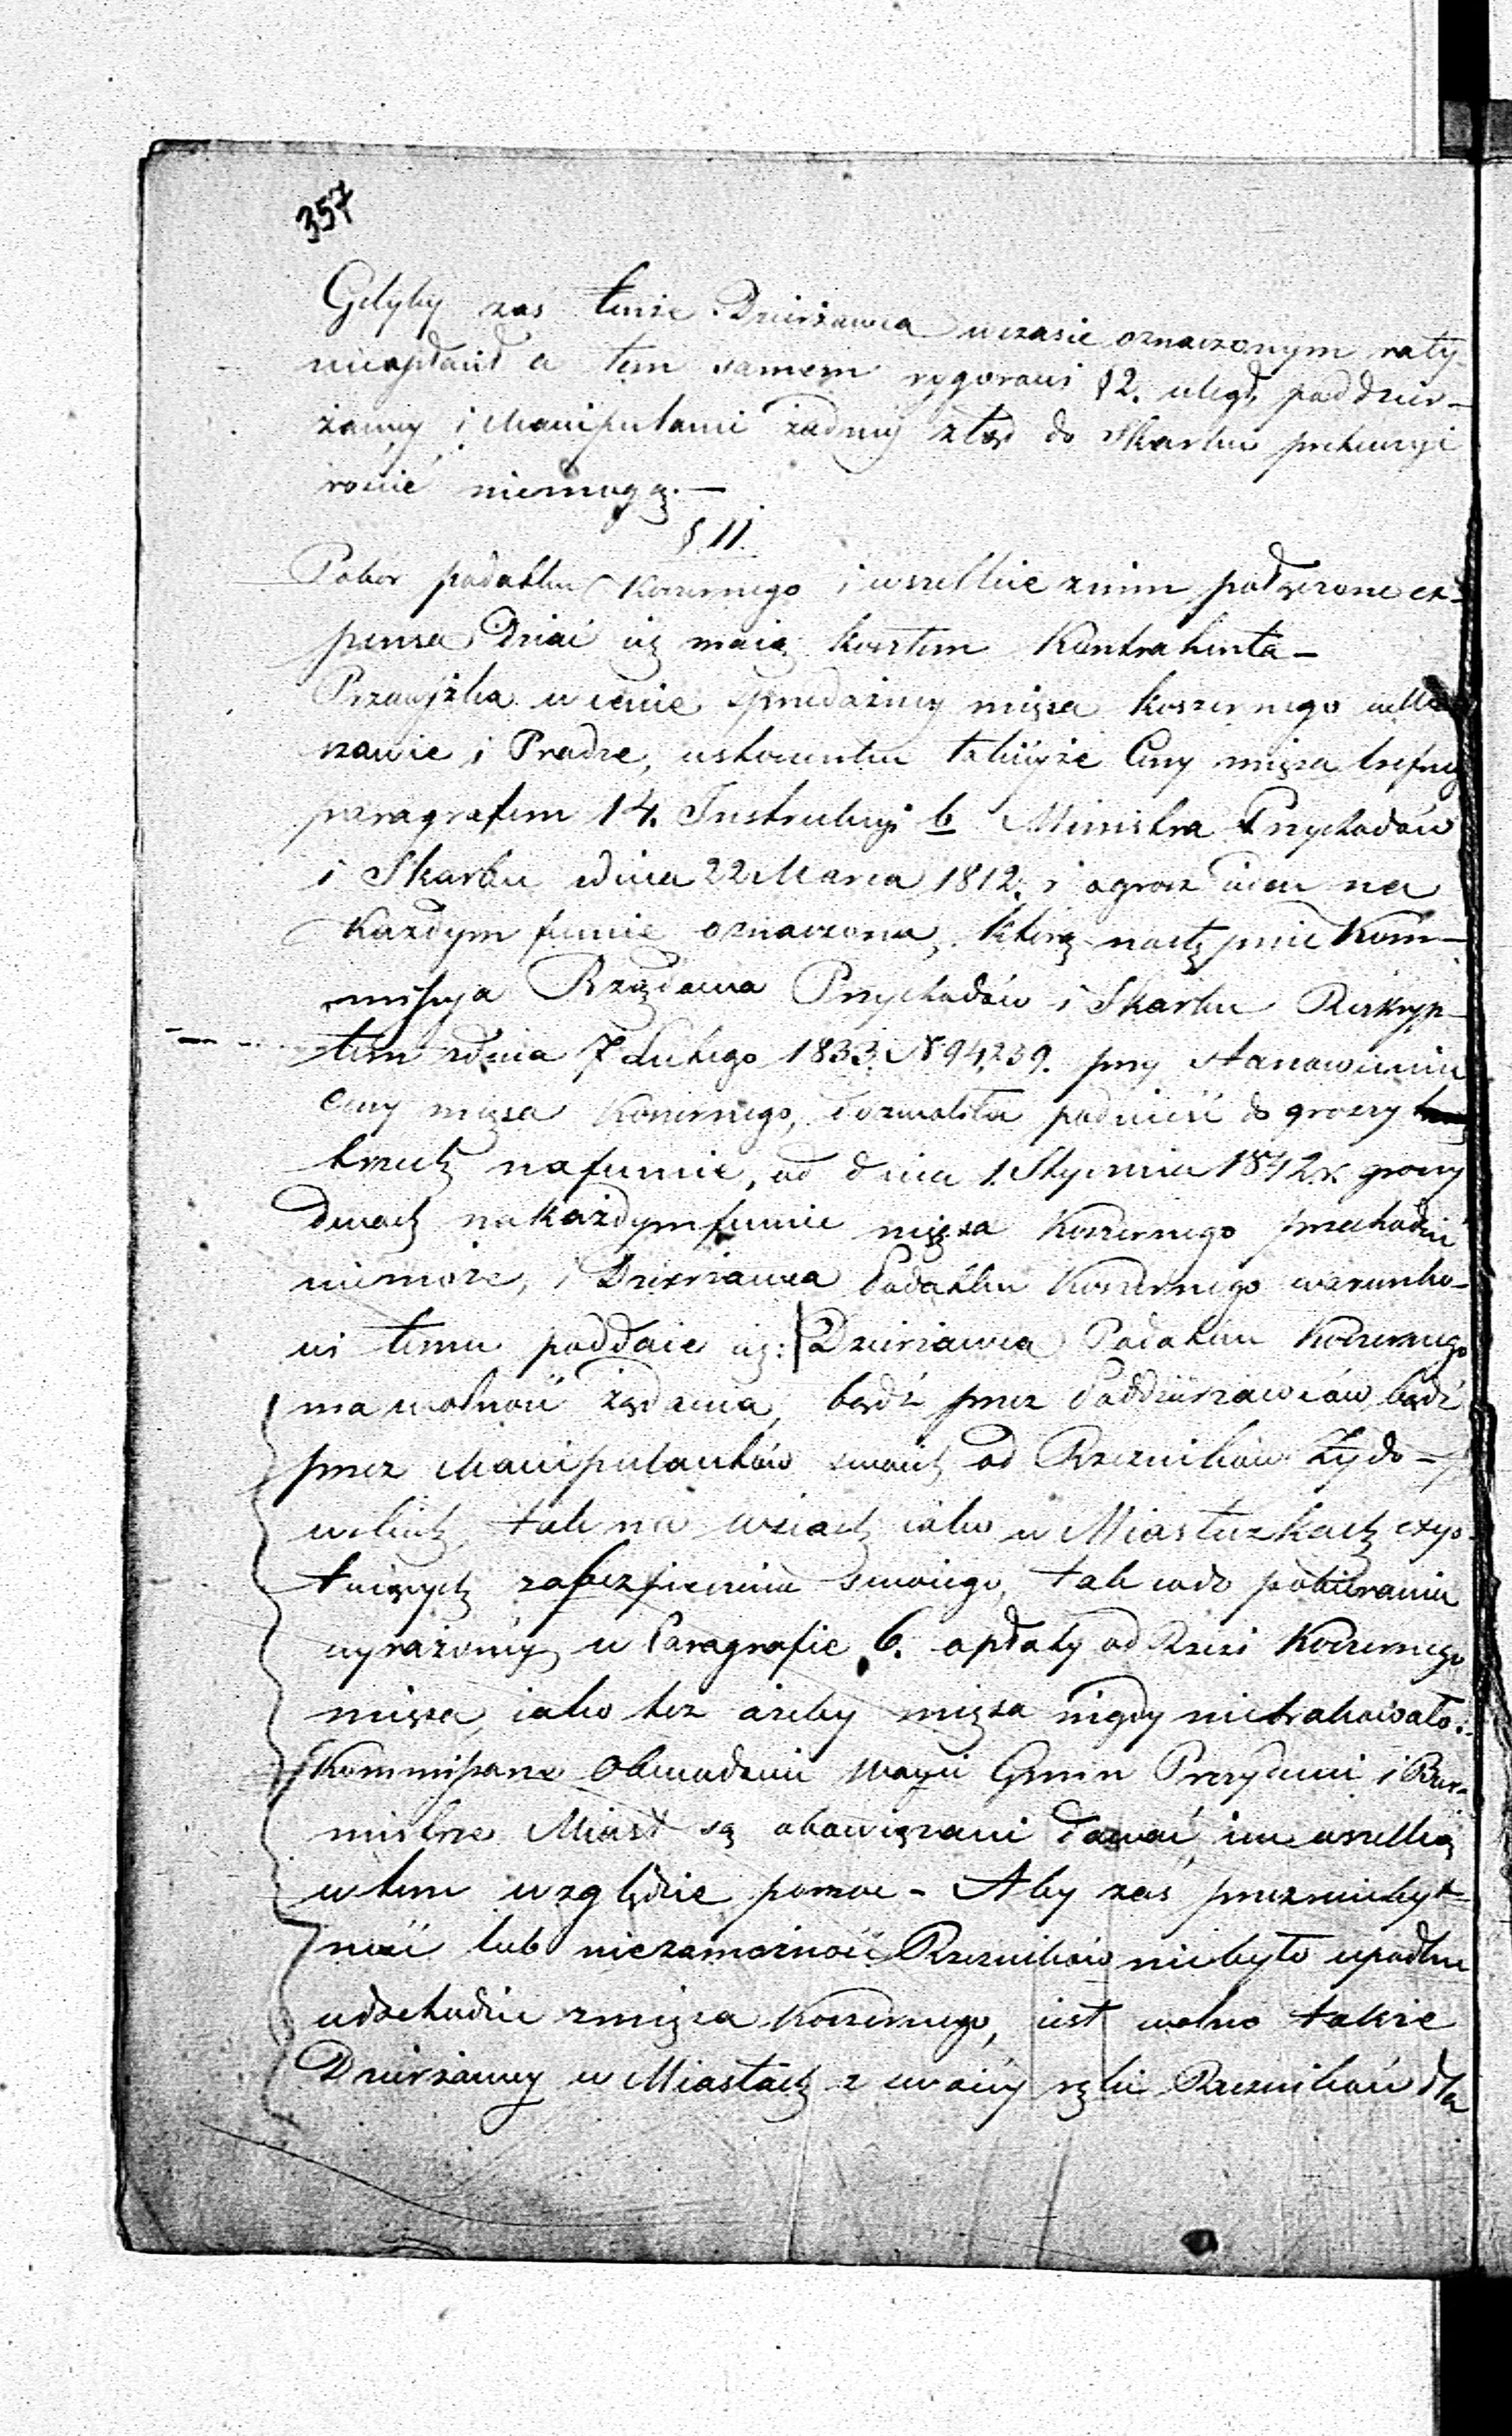 357
Gdyby zaś tenże Dzierżawca wczasie oznaczonym raty
nieopłacił a tem samem rygorowi § 2. uległ, poddzier-
żawcy i Manipulanci żadnej ztąd do Skarbu pretensyi
rościć niemogą.—
§ 11.
Pobor podatku Koszernego i wszelkie znim połączone ex-
pensa dziać się maią kosztem Kontrahenta—
Przewyżka w cenie sprzedażney mięsa koszernego w War
szawie i Pradze, wstosunku takieyże Ceny mięsa trefnego
paragrafem 14. Instrukcyi b Ministra Przychodów
i Skarbu zdnia 22 Marca 1812. r o grosz ieden na
Każdym funcie oznaczona, którą następnie Kom-
missya Rządowa Przychodów i Skarbu Reskryp-
tem zdnia 7 Lutego 1833. N 94,239. przy stanowieniu
Ceny mięsa Koszernego, dozwoliła podnieść do groszy
trzech nafuncie, od dnia 1. Stycznia 1842 r. groszy
dwóch nakażdym funcie mięsa Koszernego przechodzić
niemoże, i Dzierżawca Podatku Koszernego warunko-
wi temu poddaie się: Dzierżawca Podatku Koszernego
ma wolność żądania, bądź przez Poddzierżawców bądź
przez Manipulantów swoich od Rzezników Żydo-
wskich, tak na wsiach iako w Miasteczkach exys-
tuiących zabezpieczenia swoiego, tak wedo pobierania
wyrażoney w Paragrafie 6. opłaty od Rzezi Koszernego
mięsa, iako też ażeby mięsa nigdy niebrakowało.
Kommissarze Obwodowi Woyci Gmin Prezydenci i Bur-
mistrze Miast są obowiązani dawać im wszelką
wtem względzie pomoc - Aby zaś przez niebyt-
ność lub niezamożność Rzezników niebyło upadku
wdochodzie zmięsa Koszernego, iest wolno także
Dzierżawcy w Miastach z swoiey ręki Rzezników dla